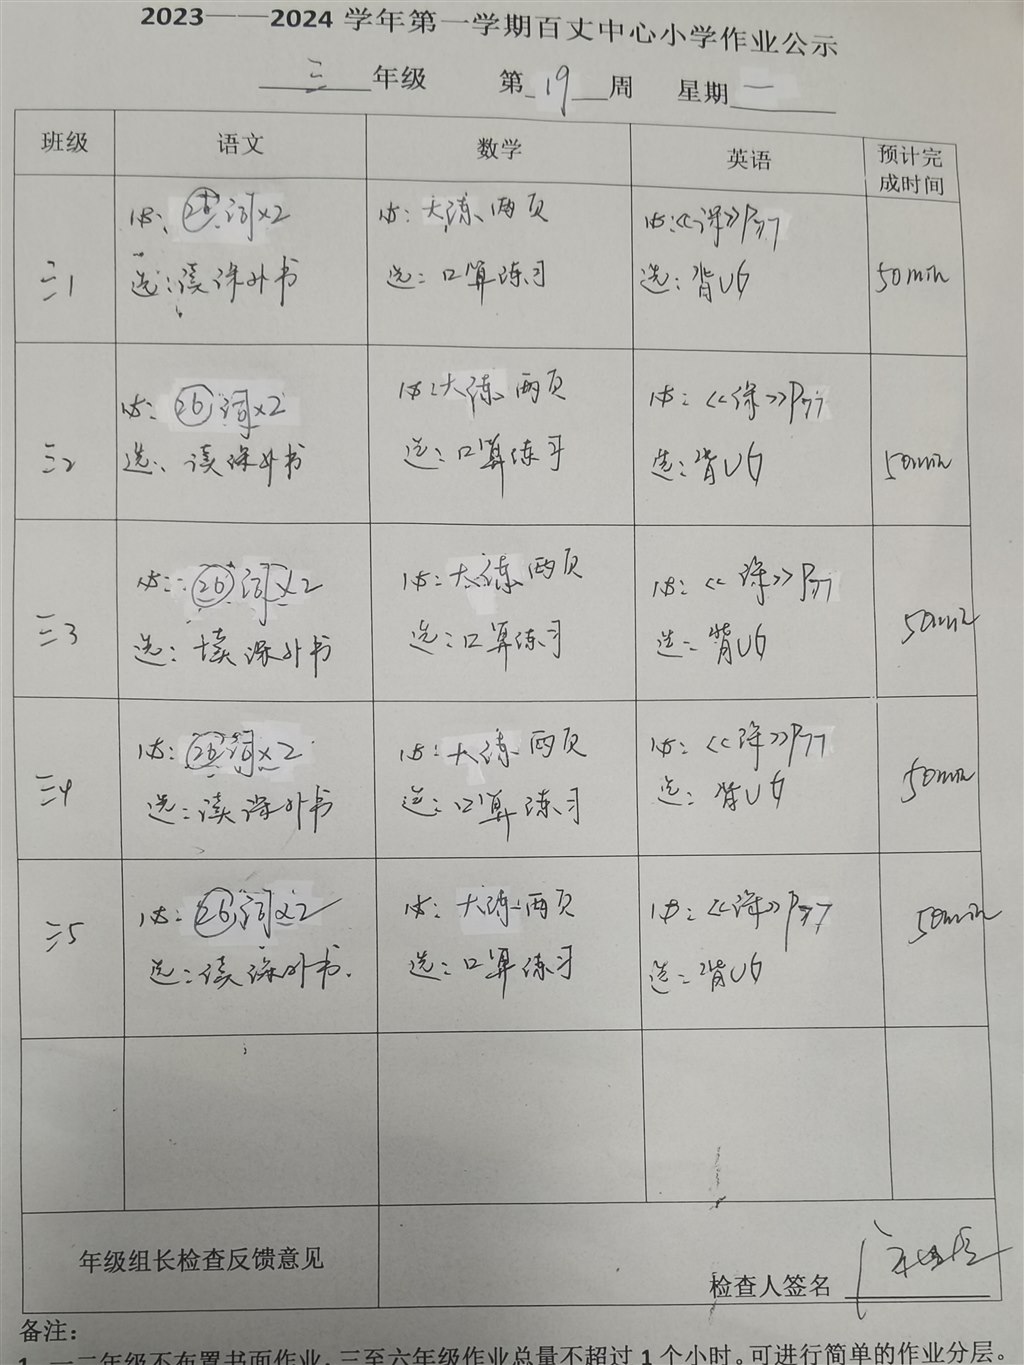 2023——2024 学年第一学期百丈中心小学作业公示
三 年级 第 19 周 星期 一
班级 语文 数学 英语 预计完成时间
三1
必: 26 词×2
选: 读课外书
必: 大练 两页
选: 口算练习
必:《课》P77
选: 背U6
50min
三2
必: 26 词×2
选: 读课外书
必: 大练 两页
选: 口算练习
必:《课》P77
选: 背U6
50min
三3
必: 26 词×2
选: 读课外书
必: 大练 两页
选: 口算练习
必:《课》P77
选: 背U6
50min
三4
必: 26 词×2
选: 读课外书
必: 大练 两页
选: 口算练习
必:《课》P77
选: 背U6
50min
三5
必: 26 词×2
选: 读课外书.
必: 大练 两页
选: 口算练习
必:《课》P77
选: 背U6
50min
年级组长检查反馈意见
检查人签名
备注:
1、一二年级不布置书面作业,三至六年级作业总量不超过 1 个小时。可进行简单的作业分层。